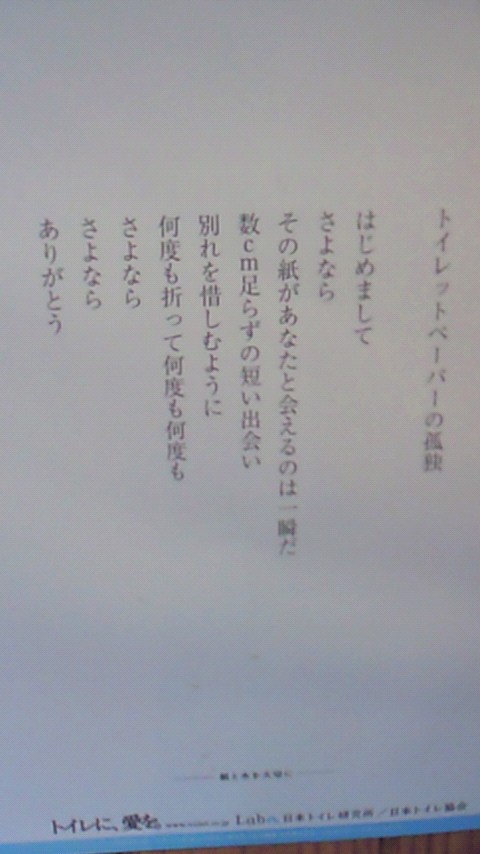 トイレットペーパーの孤独
はじめまして
さよなら
その紙があなたと会えるのは一瞬だ
数cm足らずの短い出会い
別れを惜しむように
何度も折って何度も何度も
さよなら
さよなら
ありがとう
紙と水を大切に
トイレに、愛を。 Labへ 日本トイレ研究所／日本トイレ協会